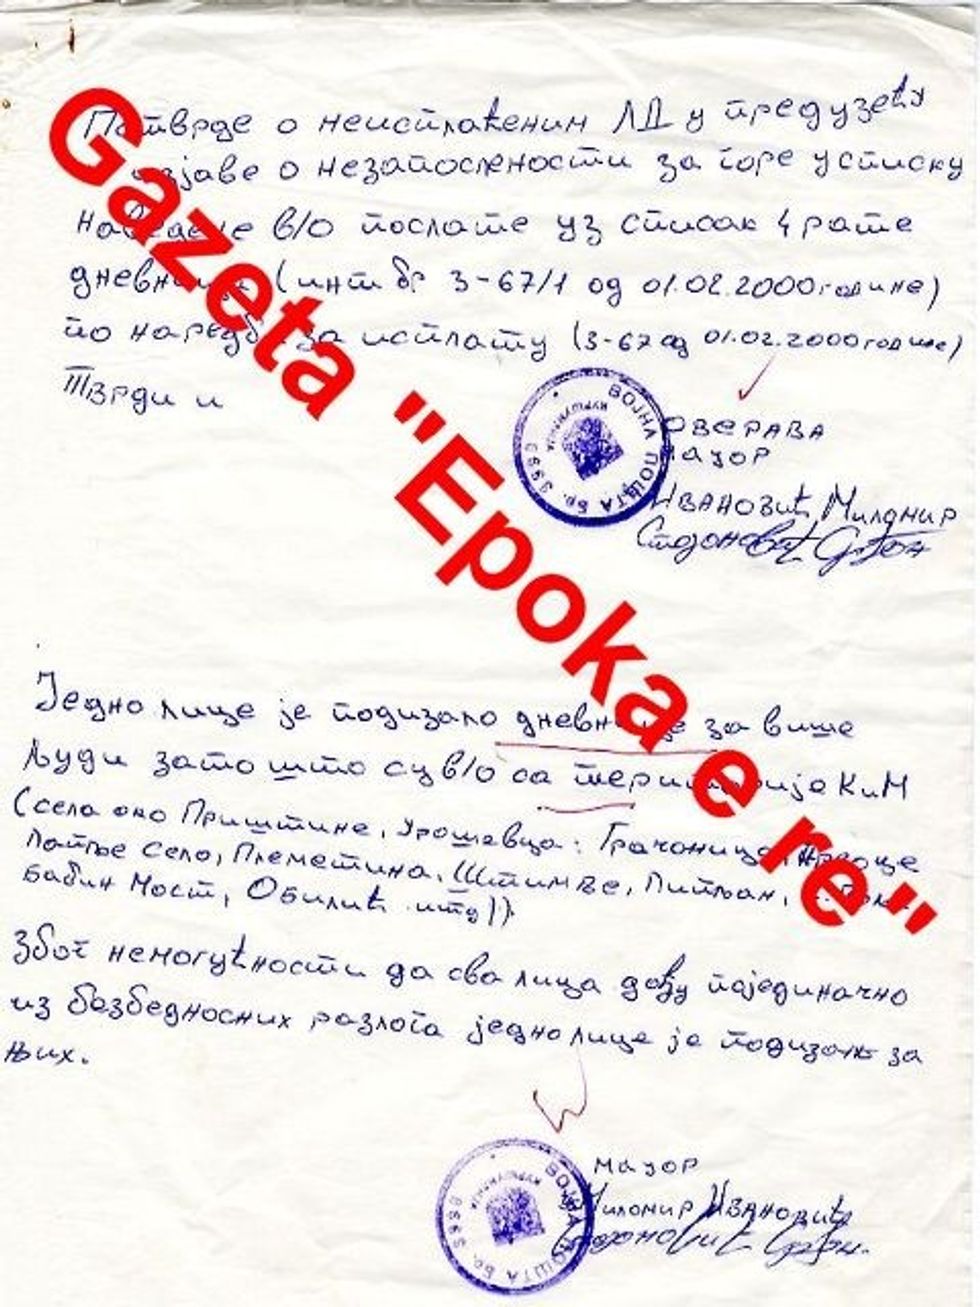 Потврде о неисплаћеним ЛД у предузећу
изјаве о незапослености за горе у списку
наведене в/о послате уз списак 4 рате
дневница (инт бр 3-67/1 од 01.02.2000 године)
по наредби за исплату (3-67 од 01.02.2000 године)
Тврди и
ОВЕРАВА
мајор
Ивановић Миломир
Стојановић
ВОЈНА ПОШТА Бр.
КУРШУМЛИЈА
Gazeta "Epoka e re"
Једно лице је подизало дневнице за више
људи зато што су в/о са територије КиМ
(села око Приштине, Урошевца: Грачаница,
Лапље Село, Племетина, Штимље, Липљан,
Бабин Мост, Обилић итд))
Због немогућности да сва лица дођу појединачно
из безбедносних разлога једно лице је подизало за
њих.
мајор
Миломир Ивановић
Стојановић
ВОЈНА ПОШТА Бр.
КУРШУМЛИЈА